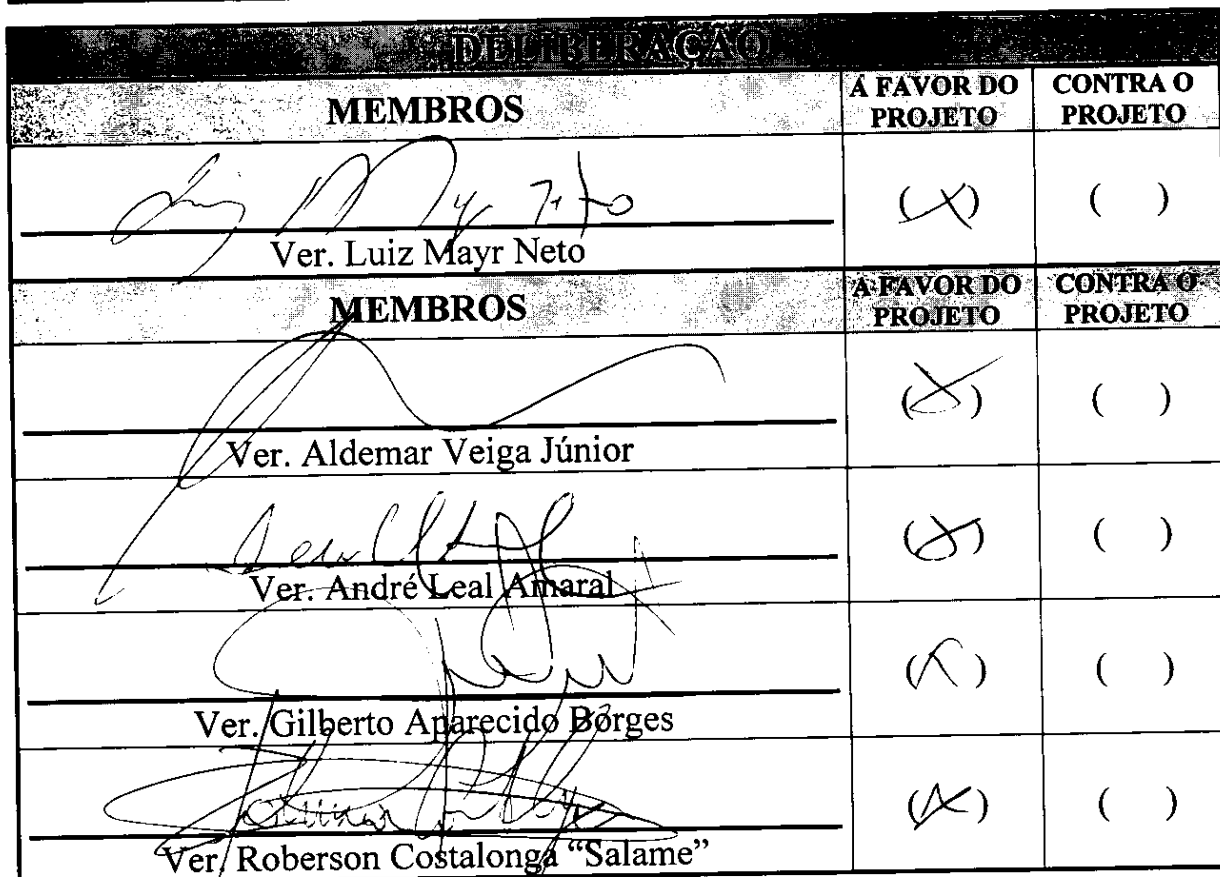 DELIBERAÇÃO
MEMBROS
A FAVOR DO PROJETO
CONTRA O PROJETO
(X)
( )
Ver. Luiz Mayr Neto
MEMBROS
A FAVOR DO PROJETO
CONTRA O PROJETO
(X)
( )
Ver. Aldemar Veiga Júnior
(X)
( )
Ver. André Leal Amaral
(X)
( )
Ver. Gilberto Aparecido Borges
(X)
( )
Ver. Roberson Costalonga “Salame”